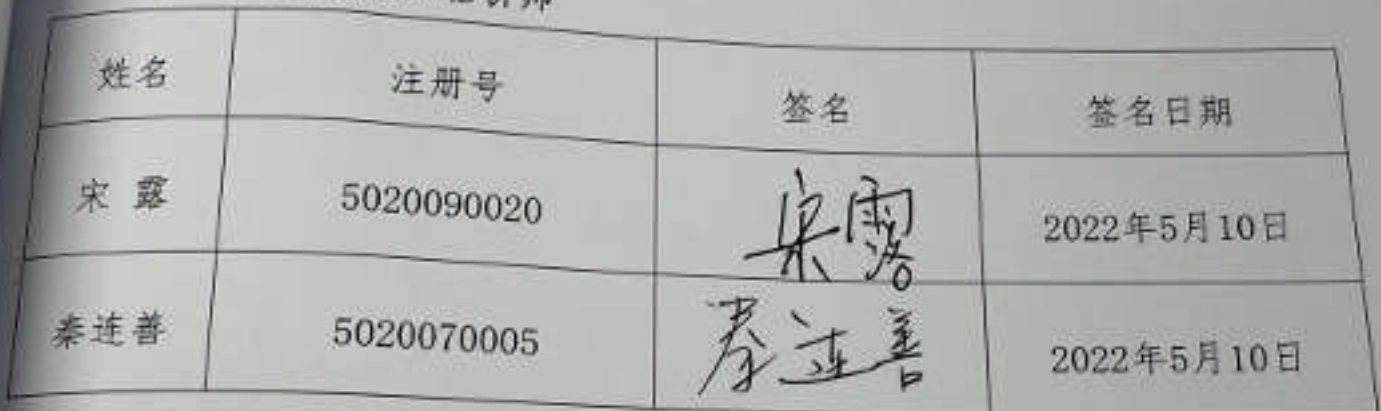 姓名 注册号 签名 签名日期
宋露 5020090020 宋露 2022年5月10日
秦连善 5020070005 秦连善 2022年5月10日